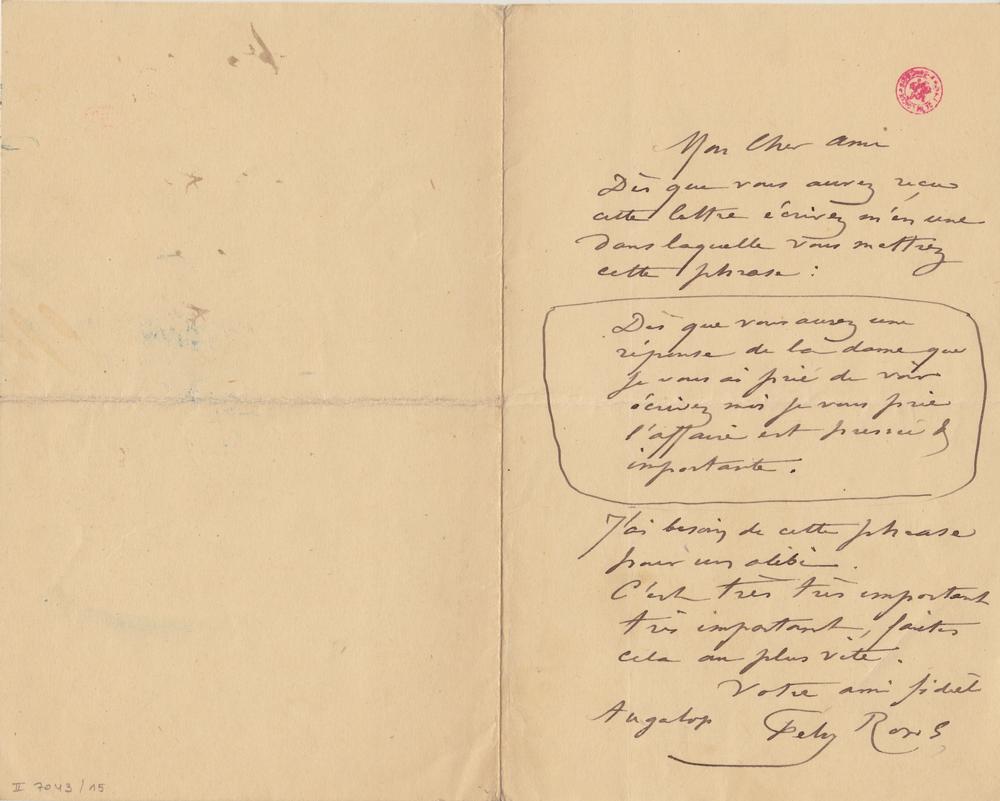 Mon Cher ami
Dès que vous aurez reçu
cette lettre écrivez m'en une
dans laquelle vous mettrez
cette phrase :
Dès que vous aurez une
réponse de la dame que
je vous ai prié de voir
écrivez moi je vous prie
l'affaire est pressée &
importante.
J'ai besoin de cette phrase
pour un alibi.
C'est très très important
très important, faites
cela au plus vite.
Votre ami fidèle
Au galop Fely Rops
II 7043 / 15